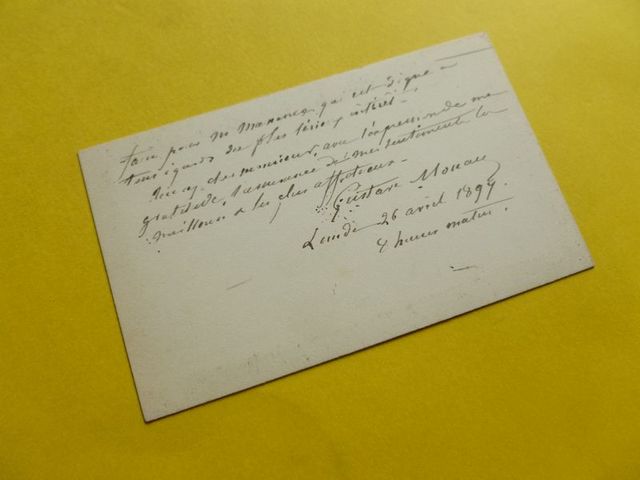 faire pour M Maxence, qui est digne à
tous égards du plus sérieux intérêt.
cher monsieur, avec l'expression de ma
gratitude, l'assurance de mes sentiments les
meilleurs & les plus affectueux.
Gustave Monau
Lundi 26 avril 1897.
8 heures matin.